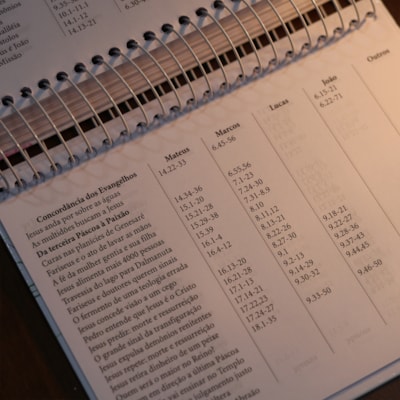 10.1-11.1
14.13-21
Concordância dos Evangelhos Mateus Marcos Lucas João Outros
Jesus anda por sobre as águas 14.22-33 6.45-56 6.15-21
As multidões buscam a Jesus 6.22-71
Da terceira Páscoa à Paixão
Curas nas planícies de Genesaré 14.34-36 6.55,56
Fariseus e o ato de lavar as mãos 15.1-20 7.1-23
A fé da mulher gentia e sua filha 15.21-28 7.24-30
Jesus alimenta mais 4000 pessoas 15.29-38 7.31-8.9
Travessia do lago para Dalmanuta 15.39 8.10
Fariseus e doutores querem sinais 16.1-4 8.11,12
O fermento de uma teologia errada 16.4-12 8.13-21
Jesus concede visão a um cego 8.22-26
Pedro entende que Jesus é o Cristo 16.13-20 8.27-30 9.18-21
Jesus prediz: morte e ressurreição 16.21-28 9.1 9.22-27
O grande sinal da transfiguração 17.1-13 9.2-13 9.28-36
Jesus expulsa demônios renitentes 17.14-21 9.14-29 9.37-43
Jesus repete: morte e ressurreição 17.22,23 9.30-32 9.44,45
Jesus retira dinheiro de um peixe 17.24-27
Quem será o maior no Reino? 18.1-35 9.33-50 9.46-50
em direção a última Páscoa
vai ensinar no Templo
julgamento justo